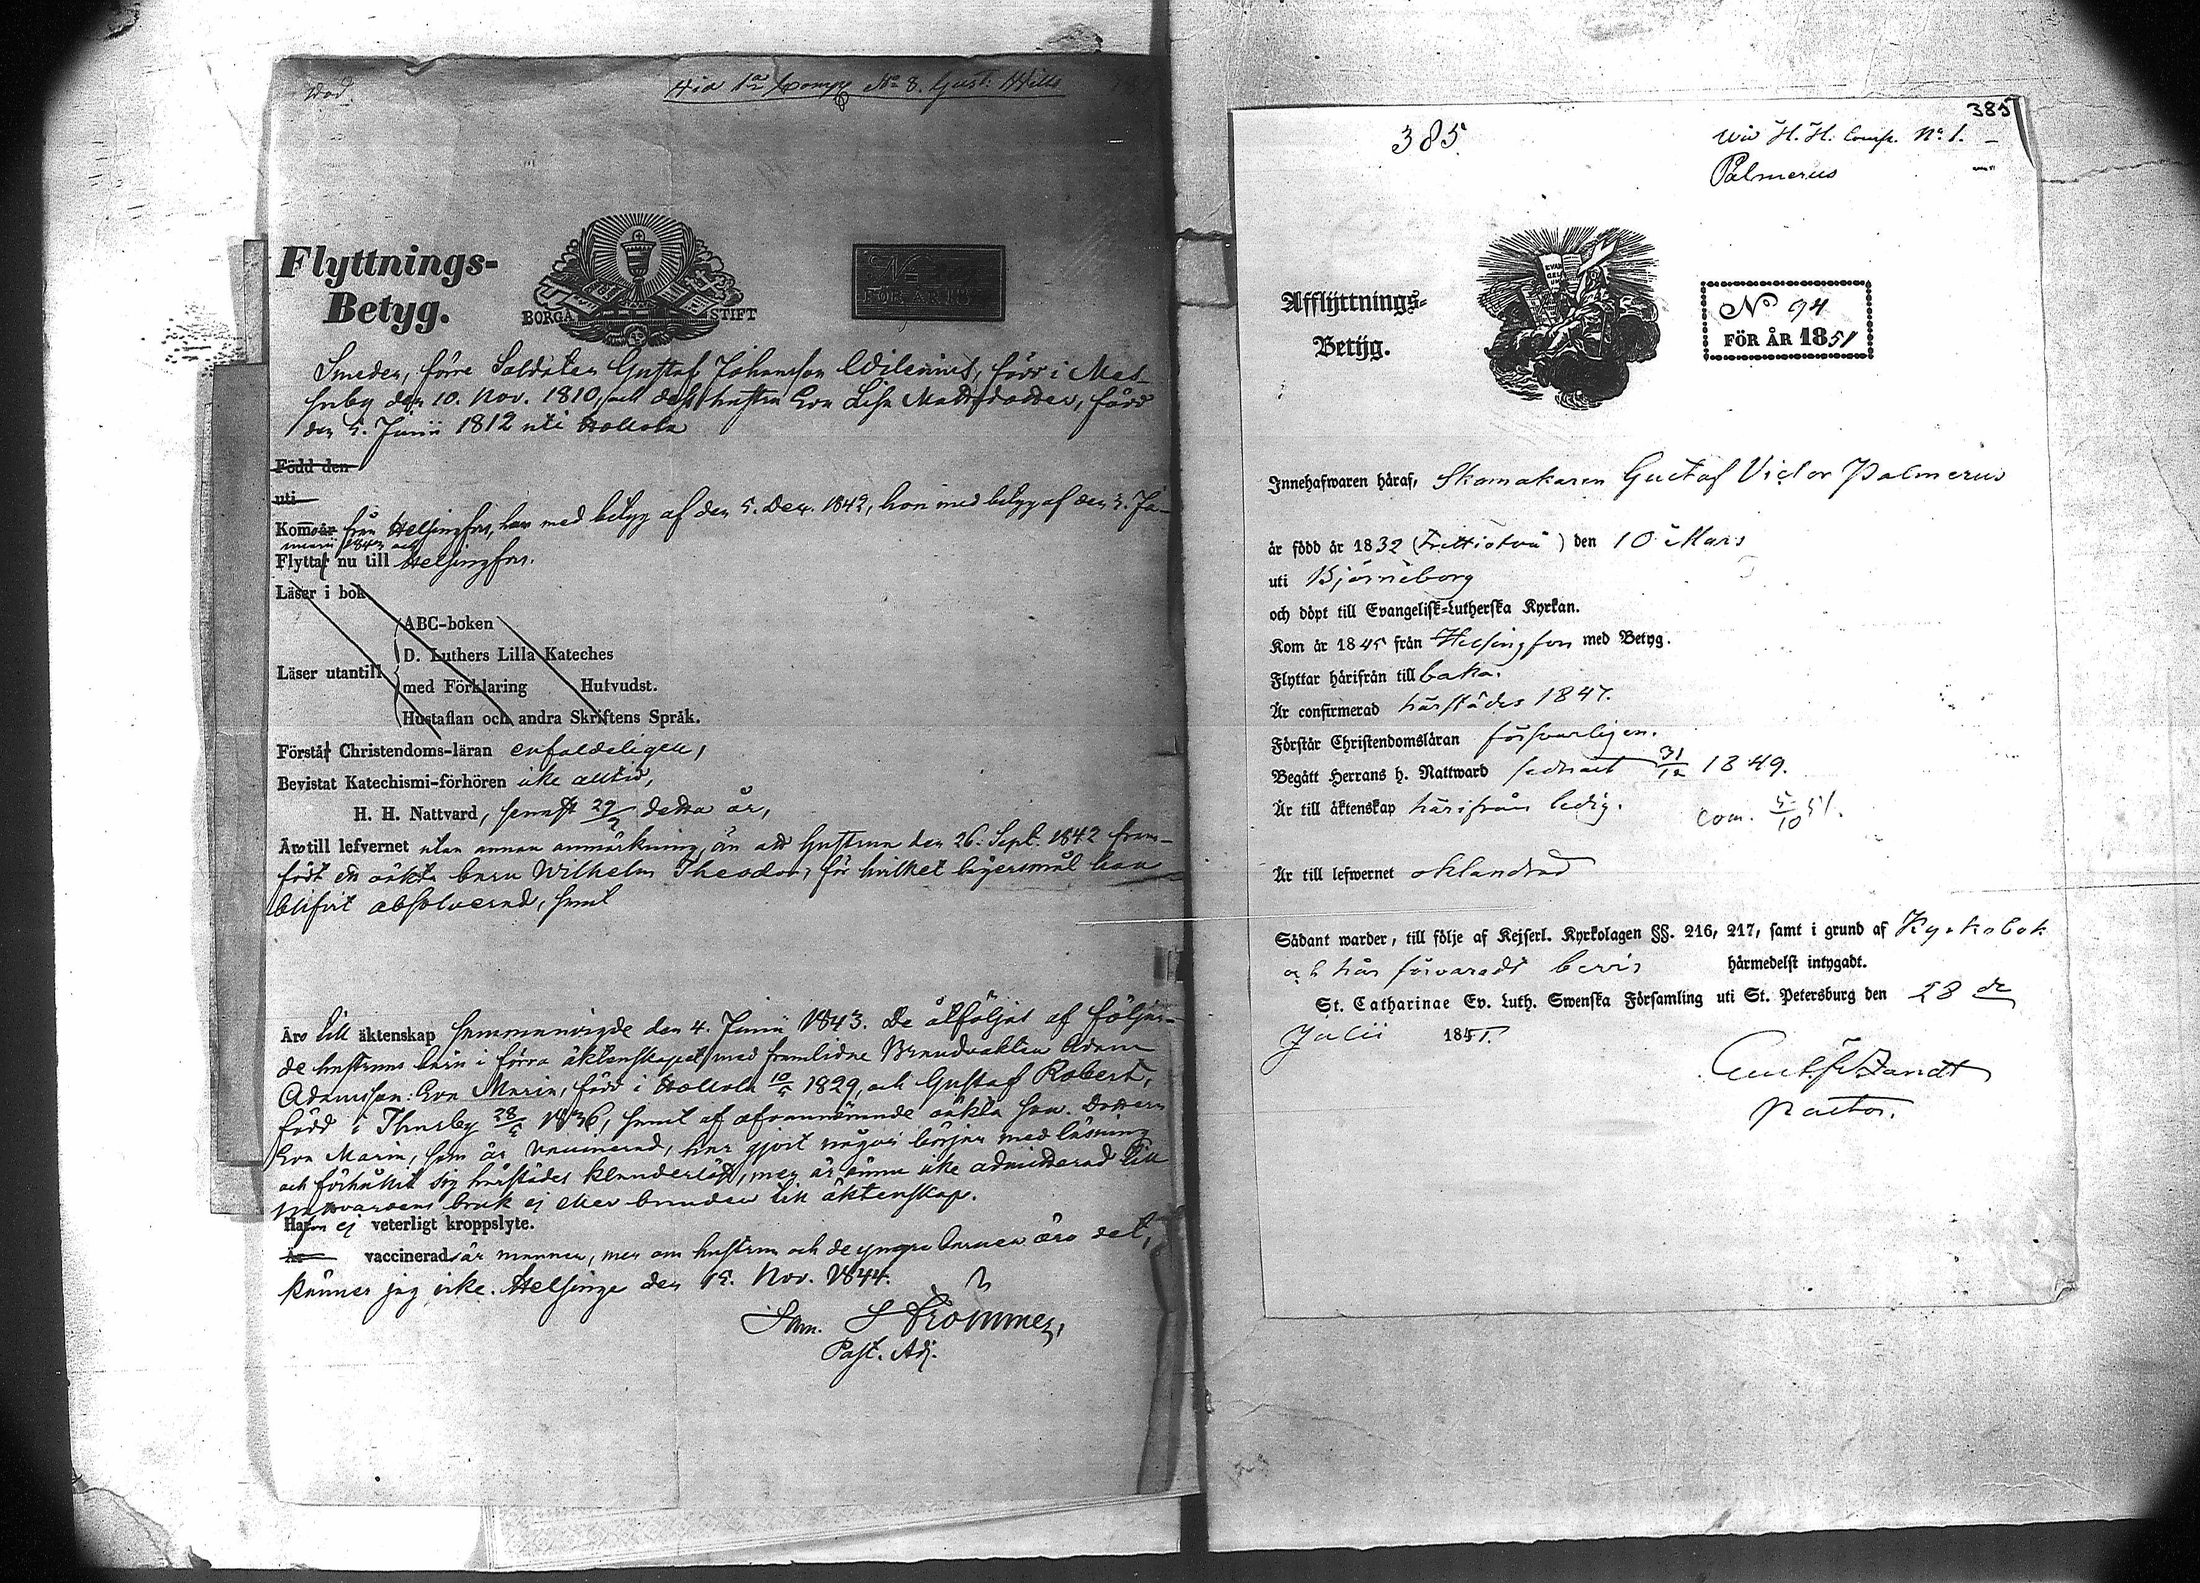 Wid 1a Comp. No 8. Gust. Wille
Flyttnings-
Betyg.
BORGÅ STIFT
No
FÖR ÅR 18
Smeden, förre Soldaten Gustaf Johansson Wilenius, född i Mes-
kuby den 10. Nov. 1810, och dess hustru Eva Lisa Mattsdotter, född
den 5. Junii 1812 uti Hollola
Född den
uti
Kom från Helsingfors, han med betyg af den 5. Dec. 1842, hon med betyg af den 3. Ja-
nuarii 1843 och
Flytta nu till Helsingfors.
Läser i bok
ABC-boken
D. Luthers Lilla Kateches
Läser utantill
med Förklaring Hufvudst.
Hustaflan och andra Skriftens Språk.
Förstå Christendoms-läran enfaldeligen,
Bevistat Katechismi-förhören icke alltid,
H. H. Nattvard, senast 29/9 detta år,
Äro till lefvernet utan annan anmärkning, än att hustrun den 26. Sept. 1842 fram-
födt ett oäkta barn Wilhelm Theodor, för hvilket lägersmål hon
blifvit absolverad, samt
Äro till äktenskap sammanvigde den 4. Junii 1843. De åtföljas af följan-
de hustruns barn i förra äktenskapet med framlidne Brandvakten Adam
Adamsson: Eva Maria, född i Hollola 10/5 1829, och Gustaf Robert,
född i Thusby 28/5 1836, samt af ofvannämnde oäkta son. Dottern
Eva Maria, som är vaccinerad, har gjort någon början med läsning
och förhållit sig härstädes klanderlöst, men är ännu icke admitterad till
nattvardens bruk ej eller bunden till äktenskap.
Hafva ej veterligt kroppslyte.
Är vaccinerad är mannen, men om hustrun och de yngre barnen äro det,
känner jag icke. Helsinge den 15. Nov. 1844.
Sam. Strömmer,
Past. Adj.
385
385
Wid H. H. Comp. No 1.
Palmerus
Afflyttnings-
Betyg.
No 94
FÖR ÅR 1851
Innehafwaren häraf, Skomakaren Gustaf Victor Palmerus
är född år 1832 (Trettiotvå) den 10 Mars
uti Björneborg
och döpt till Evangelisk-Lutherska Kyrkan.
Kom år 1845 från Helsingfors med Betyg.
Flyttar härifrån tillbaka.
Är confirmerad härstädes 1847.
Förstår Christendomsläran försvarligen.
Begått Herrans h. Nattward sednast 31/12 1849.
Är till äktenskap härifrån ledig. Com. 5/10 51.
Är till lefwernet oklandrad
Sådant warder, till följe af Kejserl. Kyrkolagen §§. 216, 217, samt i grund af Kyrkobok
och här förvaradt bevis härmedelst intygadt.
St. Catharinae Ev. Luth. Swenska Församling uti St. Petersburg den 28 de
Julii 1851.
Pastor.